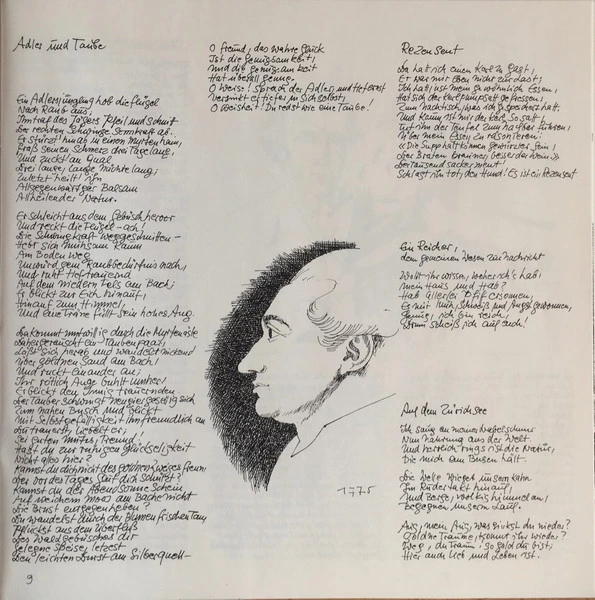 Adler und Taube
Ein Adlersjüngling hob die Flügel
Nach Raub aus;
Ihn traf des Jägers Pfeil und schnitt
Der rechten Schwinge Sennkraft ab.
Er stürzt hinab in einen Myrtenhain,
Fraß seinen Schmerz drei Tage lang,
Und zuckt an Qual
Drei lange, lange Nächte lang;
Zuletzt heilt ihn
Allgegenwärtger Balsam
Allheilender Natur.
Er schleicht aus dem Gebüsch hervor
Und reckt die Flügel – ach!
Die Schwingkraft weggeschnitten –
Hebt sich mühsam kaum
Am Boden weg
Unwürdgem Raubbedürfnis nach,
Und ruht tieftrauernd
Auf dem niedern Fels am Bach;
Er blickt zur Eich hinauf,
Hinauf zum Himmel,
Und eine Träne füllt sein hohes Aug.
Da kommt mutwillig durch die Myrtenäste
Dahergerauscht ein Taubenpaar,
Läßt sich herab und wandelt nickend
Über goldnen Sand am Bach
Und ruckt einander an;
Ihr rötlich Auge buhlt umher,
Erblickt den Innigtrauernden.
Der Tauber schwingt neugiergesellig sich
Zum nahen Busch und blickt
Mit Selbstgefälligkeit ihm freundlich an.
Du trauerst, liebelt er,
Sei guten Mutes, Freund!
Hast du zur ruhigen Glückseligkeit
Nicht alles hier?
Kannst du dich nicht des goldnen Zweiges freun
Der vor des Tages Glut dich schützt?
Kannst du der Abendsonne Schein
Auf weichem Moos am Bache nicht
Die Brust entgegenheben?
Du wandelst durch der Blumen frischen Tau
Pflückst aus dem Überfluß
Des Waldgebüsches dir
Gelegne Speise, letzest
Den leichten Durst am Silberquell –
9
O Freund, das wahre Glück
Ist die Genügsamkeit,
Und die Genügsamkeit
Hat überall genug.
O Weise! Sprach der Adler, und tief ernst
Versinkt er tiefer in sich selbst;
O Weisheit! Du redst wie eine Taube!
1775
Rezensent
Da hatt ich einen Kerl zu Gast,
Er war mir eben nicht zur Last;
Ich hatt just mein gewöhnlich Essen,
Hat sich der Kerl pumpsatt gefressen,
Zum Nachtisch, was ich gespeichert hatt.
Und kaum ist mir der Kerl so satt,
Tut ihn der Teufel zum Nachbar führen,
Über mein Essen zu räsonieren:
«Die Supp hätt können gewürzter sein,
Der Braten brauner, besser der Wein.»
Der Tausendsackerment!
Schlagt ihn tot, den Hund! Es ist ein Rezensent
Ein Reicher,
dem gemeinen Wesen zur Nachricht
Wollt ihr wissen, woher ich's hab,
Mein Haus und Hab?
Hab allerlei Pfiff ersonnen,
Es mit Müh, Schweiß und Angst gewonnen,
Genug, ich bin reich,
Drum scheiß ich auf euch!
Auf dem Zürichsee
Ich saug an meiner Nabelschnur
Nun Nahrung aus der Welt.
Und herrlich rings ist die Natur,
Die mich am Busen hält.
Die Welle wieget unsern Kahn
Im Rudertakt hinauf,
Und Berge, wolkig himmelan,
Begegnen unserm Lauf.
Aug, mein Aug, was sinkst du nieder?
Goldne Träume, kommt ihr wieder?
Weg, du Traum, so gold du bist;
Hier auch Lieb und Leben ist.